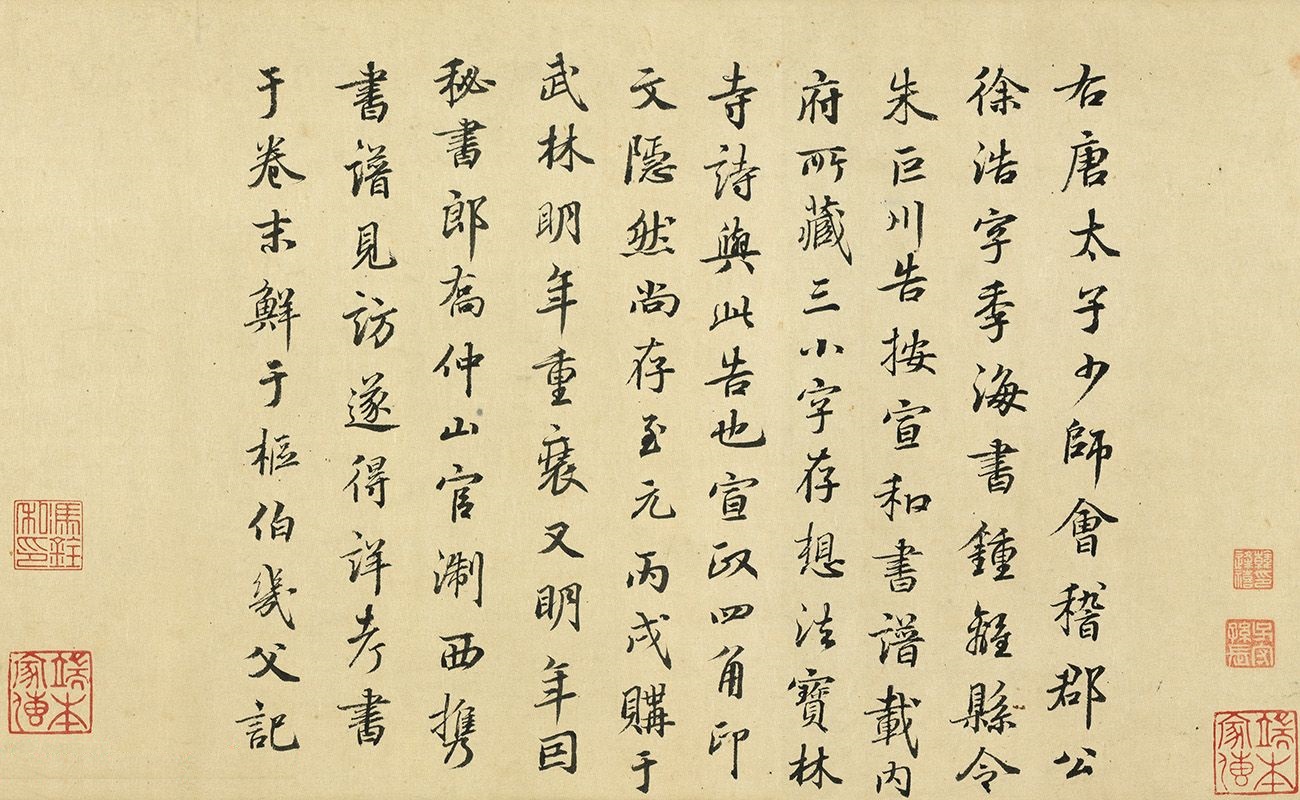 右唐太子少師會稽郡公
徐浩字季海書鍾離縣令
朱巨川告按宣和書譜載内
府所藏三小字存想法寶林
寺詩與此告也宣政四角印
文隱然尚存至元丙戌購于
武林明年重裝又明年因
秘書郎喬仲山官淛西携
書譜見訪遂得詳考書
于卷末鮮于樞伯幾父記
馮銓私印
端本家傳
端本家傳